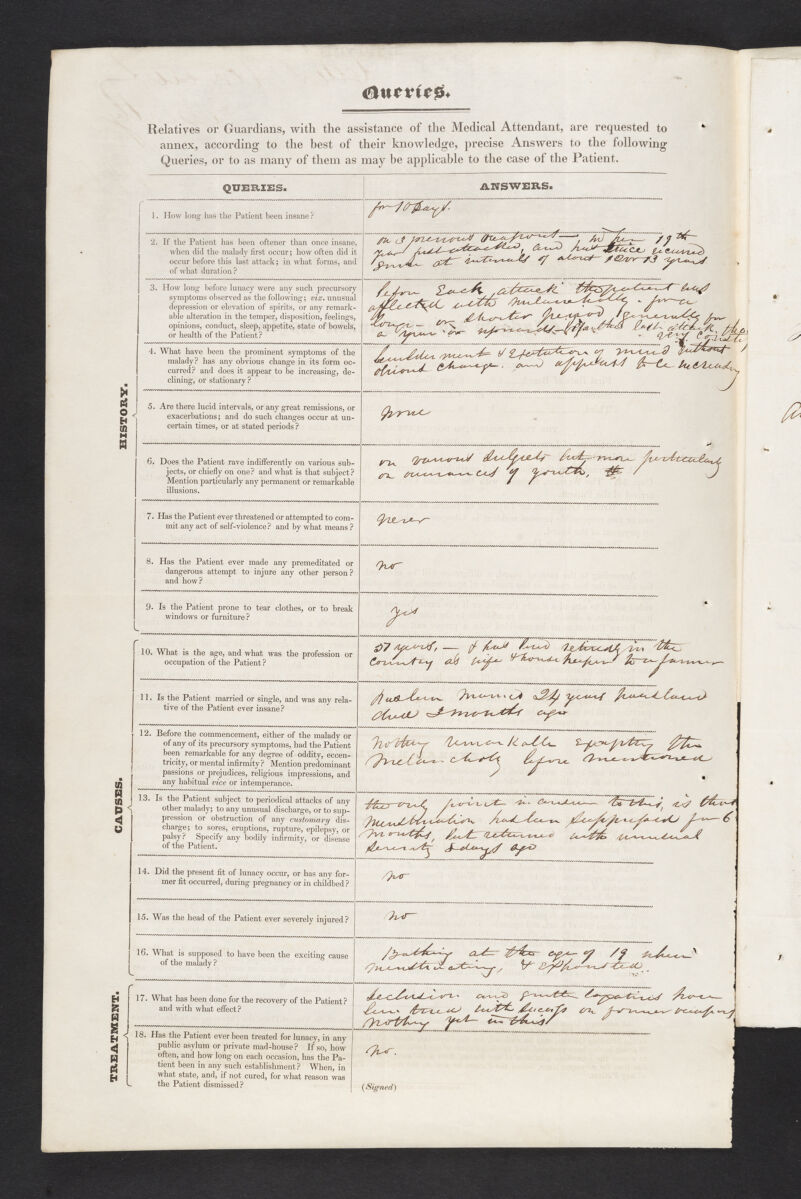 Queries.
Relatives or Guardians, with the assistance of the Medical Attendant, are requested to
annex, according to the best of their knowledge, precise Answers to the following
Queries, or to as many of them as may be applicable to the case of the Patient.
QUERIES.
ANSWERS.
HISTORY.
1. How long has the Patient been insane?
for 10 Days.
2. If the Patient has been oftener than once insane,
when did the malady first occur; how often did it
occur before this last attack; in what forms, and
of what duration?
on 3 previous occasions — in her 19th
year first attacked, and has since occurred
at intervals of about 12 or 13 years
3. How long before lunacy were any such precursory
symptoms observed as the following; viz. unusual
depression or elevation of spirits, or any remark-
able alteration in the temper, disposition, feelings,
opinions, conduct, sleep, appetite, state of bowels,
or health of the Patient?
before Each attack the patient was
affected with melancholy - for a
longer - or shorter period, generally for
a year or upwards before this last attack the
very
4. What have been the prominent symptoms of the
malady? has any obvious change in its form oc-
curred? and does it appear to be increasing, de-
clining, or stationary?
bewilderment & Excitation of mind without
obvious change. and appears to be increasing
5. Are there lucid intervals, or any great remissions, or
exacerbations; and do such changes occur at un-
certain times, or at stated periods?
none
6. Does the Patient rave indifferently on various sub-
jects, or chiefly on one? and what is that subject?
Mention particularly any permanent or remarkable
illusions.
on various subjects but more particularly
on occurrences of youth.
7. Has the Patient ever threatened or attempted to com-
mit any act of self-violence? and by what means?
never
8. Has the Patient ever made any premeditated or
dangerous attempt to injure any other person?
and how?
no
9. Is the Patient prone to tear clothes, or to break
windows or furniture?
yes
CAUSES.
10. What is the age, and what was the profession or
occupation of the Patient?
57 years, — & has lived retiredly in the
country as wife & housekeeper to a farmer
11. Is the Patient married or single, and was any rela-
tive of the Patient ever insane?
has been married 24 years husband
died 3 months ago
12. Before the commencement, either of the malady or
of any of its precursory symptoms, had the Patient
been remarkable for any degree of oddity, eccen-
tricity, or mental infirmity? Mention predominant
passions or prejudices, religious impressions, and
any habitual vice or intemperance.
Nothing remarkable excepting the
melancholy before mentioned
13. Is the Patient subject to periodical attacks of any
other malady; to any unusual discharge, or to sup-
pression or obstruction of any customary dis-
charge; to sores, eruptions, rupture, epilepsy, or
palsy? Specify any bodily infirmity, or disease
of the Patient.
the only point in answer to this, is that
menstruation had been suppressed for 6
months, but returned with unusual
severity 8 days ago
14. Did the present fit of lunacy occur, or has any for-
mer fit occurred, during pregnancy or in childbed?
no
15. Was the head of the Patient ever severely injured?
no
16. What is supposed to have been the exciting cause
of the malady?
Bathing at the age of 19 when
menstruating, & exhausted.
TREATMENT.
17. What has been done for the recovery of the Patient?
and with what effect?
Seclusion and gentle laxatives have
been tried with success on former occasions
nothing yet in this
18. Has the Patient ever been treated for lunacy, in any
public asylum or private mad-house? If so, how
often, and how long on each occasion, has the Pa-
tient been in any such establishment? When, in
what state, and, if not cured, for what reason was
the Patient dismissed?
no.
(Signed)